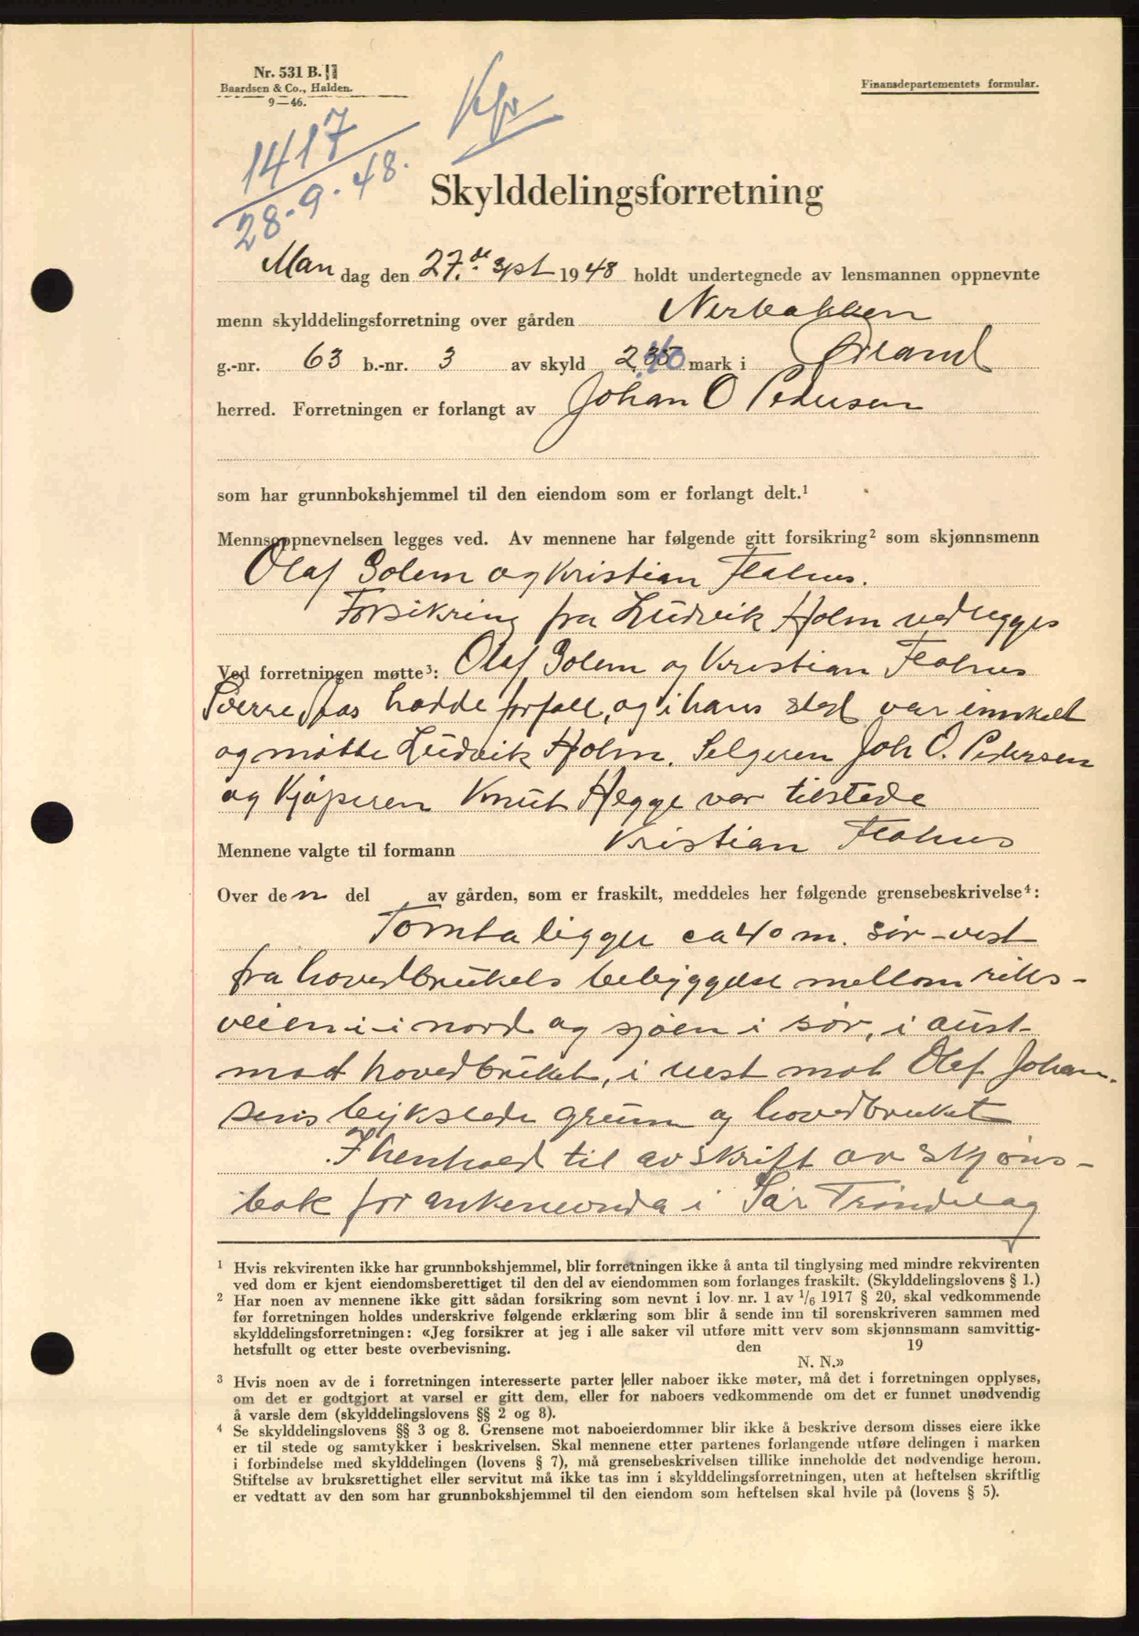 Nr. 531 B. II
Baardsen & Co., Halden.
9—46.
Finansdepartementets formular.
1417
28-9-48.
Skylddelingsforretning
Man dag den 27. de spt 1948 holdt undertegnede av lensmannen oppnevnte
menn skylddelingsforretning over gården Nerbakken
g.-nr. 63 b.-nr. 3 av skyld 2, 40 mark i Ørland
herred. Forretningen er forlangt av Johan O Pedersen
som har grunnbokshjemmel til den eiendom som er forlangt delt.¹
Mennsoppnevnelsen legges ved. Av mennene har følgende gitt forsikring² som skjønnsmenn
Olaf Solem og Kristian Flahus.
Forsikring fra Ludvik Holm vedlegges
Ved forretningen møtte³: Olaf Solem og Kristian Flahus
Sverre hadde forfall, og i hans sted var innkalt
og møtte Ludvik Holm. Selgeren Joh O. Pedersen
og Kjøperen Knut Hegge var tilstede
Mennene valgte til formann Kristian Flahus
Over den del av gården, som er fraskilt, meddeles her følgende grensebeskrivelse⁴:
Tomta ligger ca 40 m. sør-vest
fra hovedbrukets bebyggelse mellom riks-
veien i-i nord og sjøen i sør, i aust-
mot hovedbruket, i vest mot Olef Johan-
sens bykslede grunn og hovedbruket
I henhold til avskrift av skjøns-
bok for ankenevnda i Sør Trøndelag
¹ Hvis rekvirenten ikke har grunnbokshjemmel, blir forretningen ikke å anta til tinglysing med mindre rekvirenten
ved dom er kjent eiendomsberettiget til den del av eiendommen som forlanges fraskilt. (Skylddelingslovens § 1.)
² Har noen av mennene ikke gitt sådan forsikring som nevnt i lov nr. 1 av 1/6 1917 § 20, skal vedkommende
før forretningen holdes underskrive følgende erklæring som blir å sende inn til sorenskriveren sammen med
skylddelingsforretningen: «Jeg forsikrer at jeg i alle saker vil utføre mitt verv som skjønnsmann samvittig-
hetsfullt og etter beste overbevisning. den 19
N. N.»
³ Hvis noen av de i forretningen interesserte parter eller naboer ikke møter, må det i forretningen opplyses,
om det er godtgjort at varsel er gitt dem, eller for naboers vedkommende om det er funnet unødvendig
å varsle dem (skylddelingslovens §§ 2 og 8).
⁴ Se skylddelingslovens §§ 3 og 8. Grensene mot naboeierdommer blir ikke å beskrive dersom disses eiere ikke
er til stede og samtykker i beskrivelsen. Skal mennene etter partenes forlangende utføre delingen i marken
i forbindelse med skylddelingen (lovens § 7), må grensebeskrivelsen tillike inneholde det nødvendige herom.
Stiftelse av bruksrettighet eller servitut må ikke tas inn i skylddelingsforretningen, uten at heftelsen skriftlig
er vedtatt av den som har grunnbokshjemmel til den eiendom som heftelsen skal hvile på (lovens § 5).